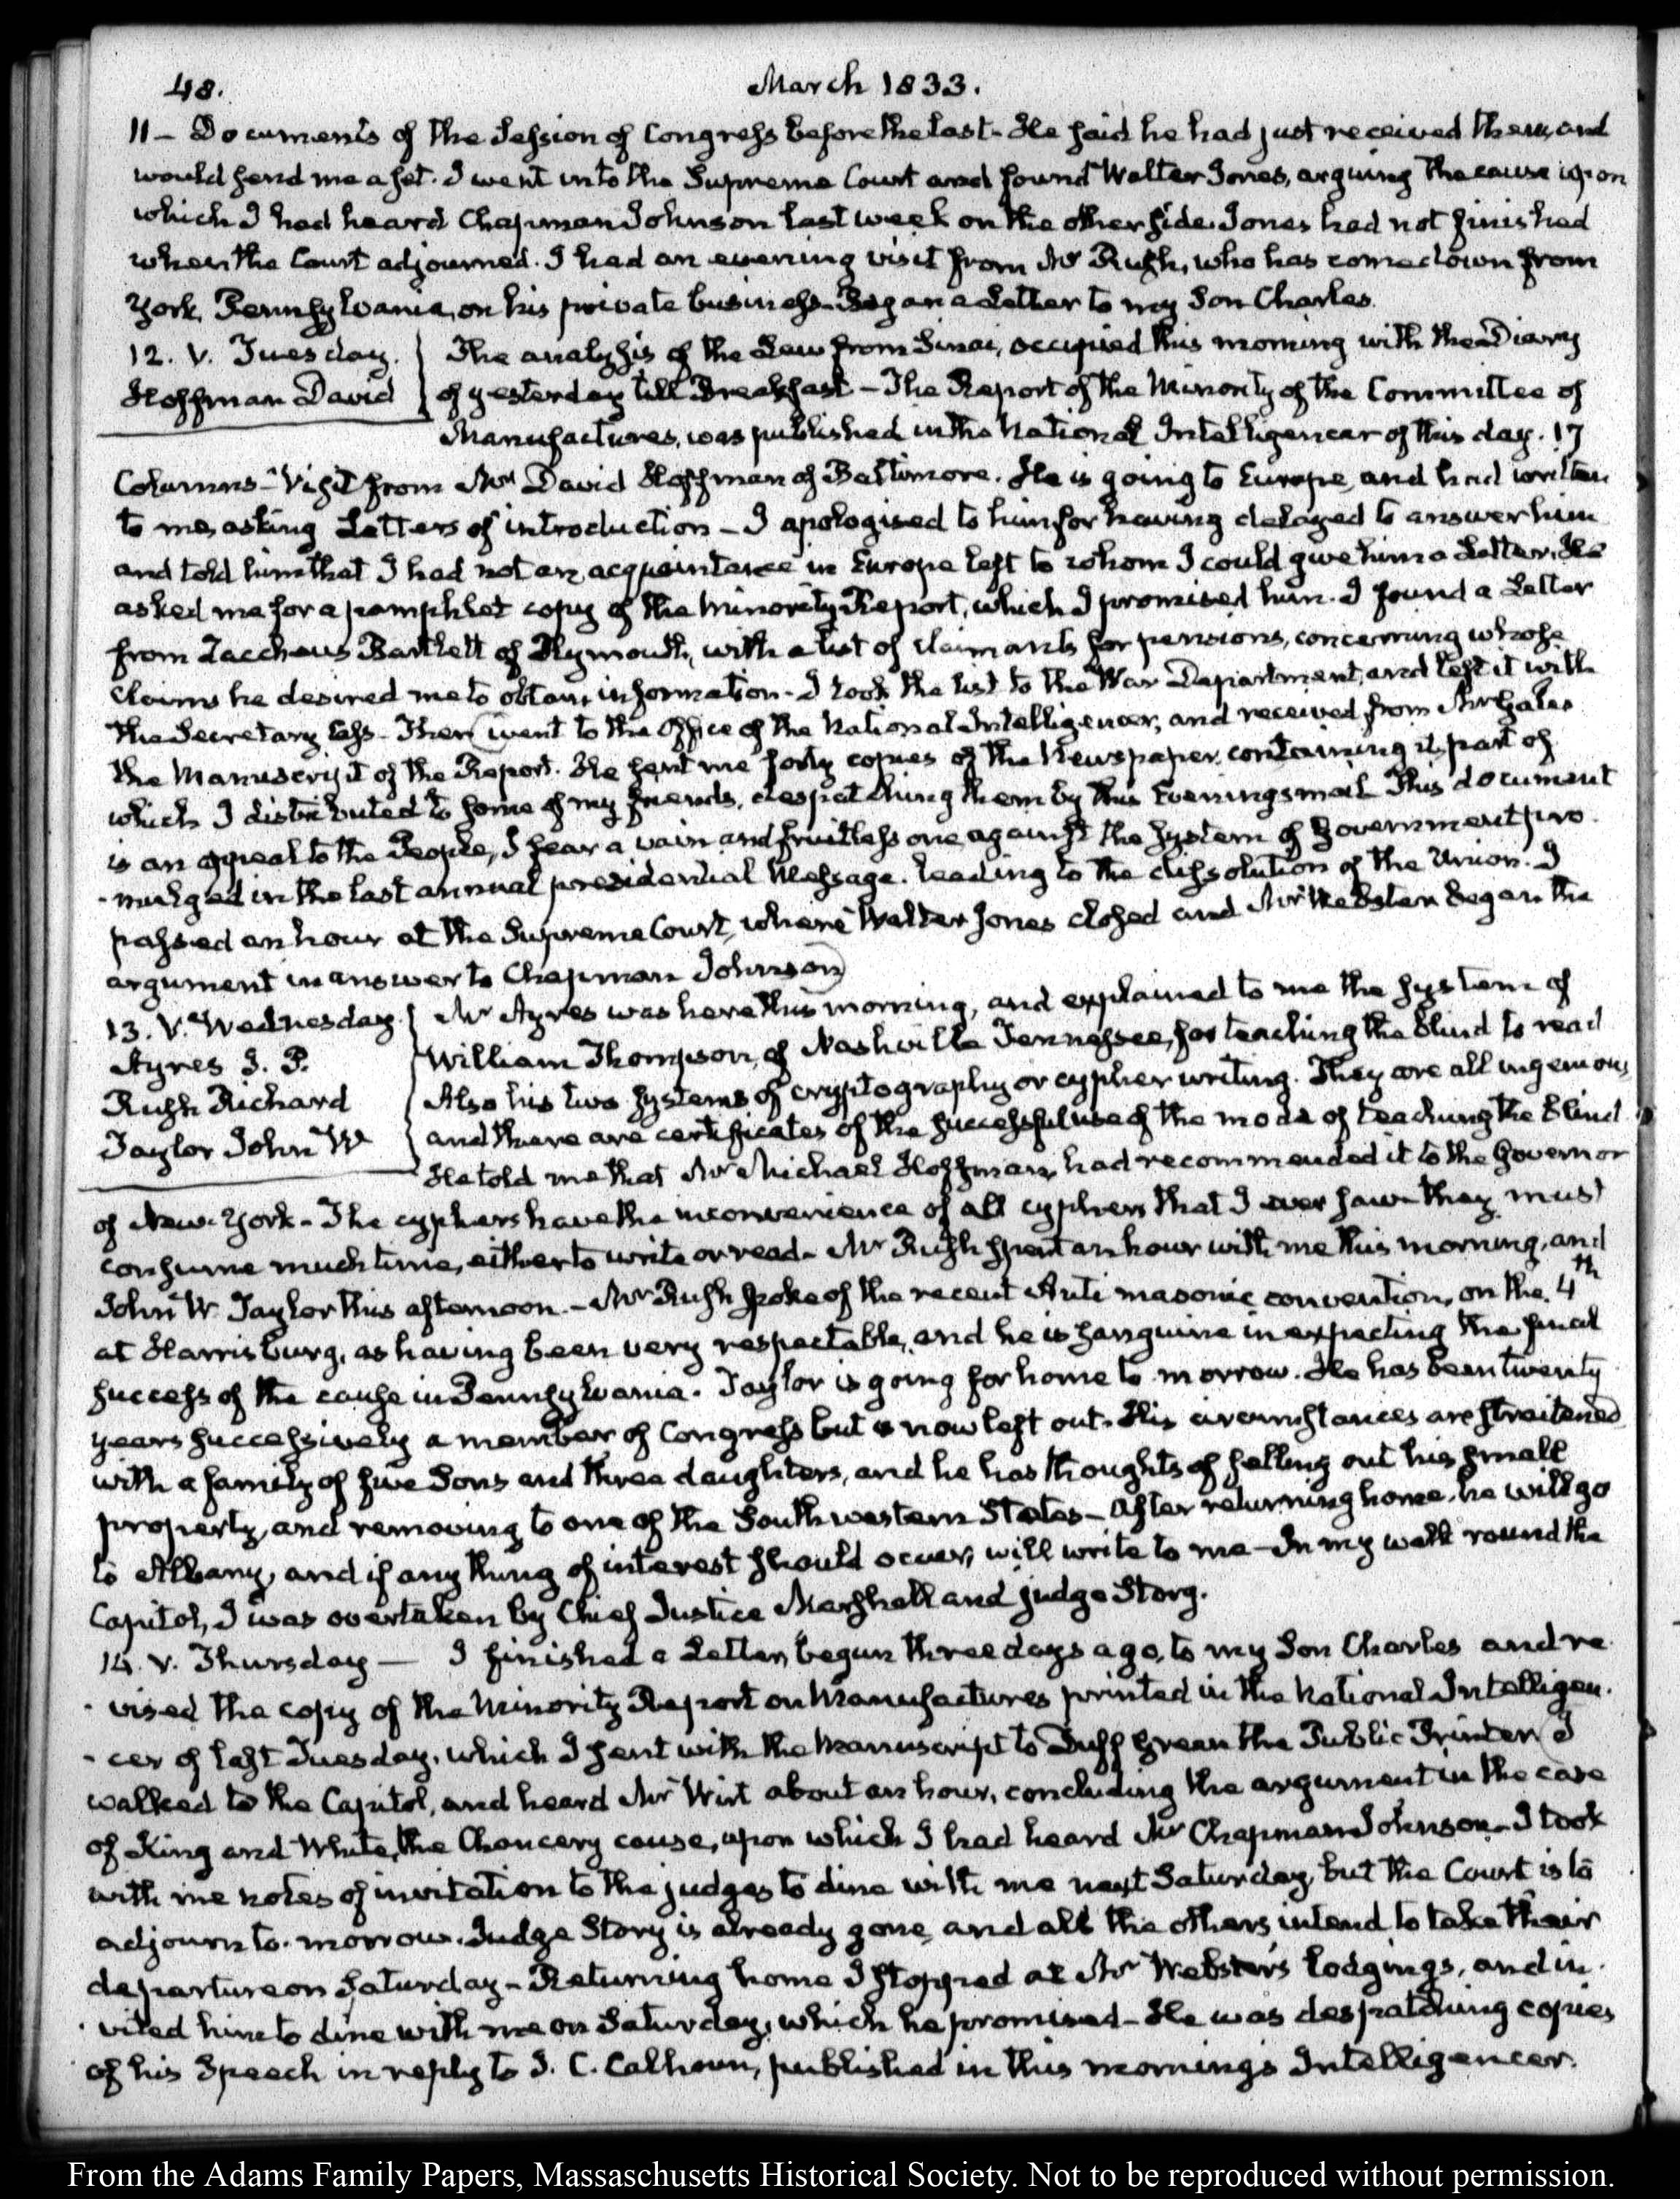 48. March 1833.
11 – Documents of the Session of Congress before the last – He said he had just received them, and
would send me a set. I went into the Supreme Court and found Walter Jones, arguing the cause upon
which I had heard Chapman Johnson last week on the other side. Jones had not finished
when the Court adjourned. I had an evening visit from Mr Rush, who has come down from
York, Pennsylvania, on his private business – Began a Letter to my Son Charles.
12. V. Tuesday. The analysis of the Law from Sinai, occupied this morning with the Diary
Hoffman David of yesterday till Breakfast – The Report of the Minority of the Committee of
Manufactures, was published in the National Intelligencer of this day. 17
Columns – Visit from Mr David Hoffman of Baltimore. He is going to Europe, and had written
to me, asking Letters of introduction – I apologised to him for having delayed to answer him
and told him that I had not an acquaintance in Europe left to whom I could give him a Letter. He
asked me for a pamphlet copy of the Minority Report, which I promised him. I found a Letter
from Zacchaus Bartlett of Plymouth, with a list of claimants for pensions, concerning whose
claims he desired me to obtain information – I took the list to the War Department, and left it with
the Secretary Cass – Then went to the Office of the National Intelligencer, and received from Mr Gales
the Manuscript of the Report. He sent me forty copies of the Newspaper containing it, part of
which I distributed to some of my friends, despatching them by this Evening's mail. This document
is an appeal to the People, I fear a vain and fruitless one against the System of Government pro-
-mulged in the last annual presidential Message. leading to the dissolution of the Union. I
passed an hour at the Supreme Court, where Walter Jones closed and Mr Webster began the
argument in answer to Chapman Johnson
13. V. Wednesday. Mr Ayres was here this morning, and explained to me the system of
Ayres S. P. William Thompson, of Nashville Tennessee, for teaching the Blind to read
Rush Richard Also his two systems of cryptography or cypher writing. They are all ingenious
Taylor John W and there are certificates of the successful use of the mode of teaching the Blind
He told me that Mr Michael Hoffman, had recommended it to the Governor
of New-York – The cyphers have the inconvenience of all cyphers that I ever saw – they must
consume much time, either to write or read – Mr Rush spent an hour with me this morning, and
John W. Taylor this afternoon. – Mr Rush spoke of the recent Anti masonic convention, on the 4th
at Harrisburg, as having been very respectable, and he is sanguine in expecting the final
success of the cause in Pennsylvania. Taylor is going for home to-morrow. He has been twenty
years successively a member of Congress but is now left out. His circumstances are straitened
with a family of five Sons and three daughters, and he has thoughts of selling out his small
property, and removing to one of the South western States – After returning home, he will go
to Albany, and if any thing of interest should occur, will write to me – In my walk round the
Capitol, I was overtaken by Chief Justice Marshall and judge Story.
14. V. Thursday — I finished a Letter, begun three days ago, to my Son Charles and re-
-vised the copy of the Minority Report on Manufactures printed in the National Intelligen-
-cer of last Tuesday, which I sent with the Manuscript to Duff Green the Public Printer I
walked to the Capitol, and heard Mr Wirt about an hour, concluding the argument in the case
of King and White, the Chancery cause, upon which I had heard Mr Chapman Johnson – I took
with me notes of invitation to the judges to dine with me next Saturday, but the Court is to
adjourn to-morrow. Judge Story is already gone, and all the others, intend to take their
departure on Saturday – Returning home I stopped at Mr Webster's lodgings, and in-
-vited him to dine with me on Saturday, which he promised – He was despatching copies
of his Speech in reply to J. C. Calhoun, published in this morning's Intelligencer.
From the Adams Family Papers, Massachusetts Historical Society. Not to be reproduced without permission.